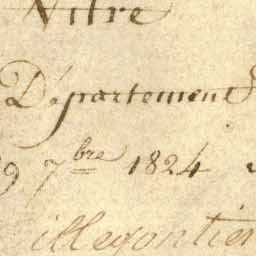 Vitré
Département
9 7bre 1824
illegontier